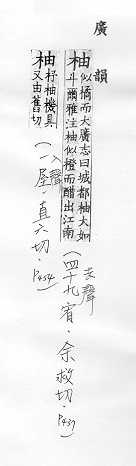 廣韻
柚 似橘而大廣志曰城都柚大如
斗爾雅注柚似橙而醋出江南
(去聲 四十九宥·余救切·P437)
柚 杼柚機具
又由舊切
(入聲 一屋·直六切·P454)